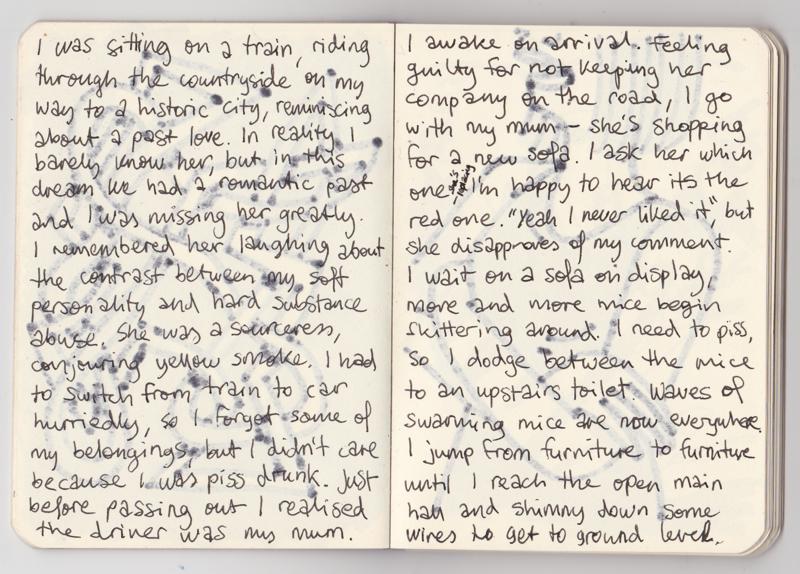 I was sitting on a train, riding
through the countryside on my
way to a historic city, reminiscing
about a past love. In reality I
barely know her, but in this
dream we had a romantic past
and I was missing her greatly.
I remembered her laughing about
the contrast between my soft
personality and hard substance
abuse. She was a sourceress,
conjouring yellow smoke. I had
to switch from train to car
hurriedly, so I forgot some of
my belongings, but I didn't care
because I was piss drunk. Just
before passing out I realised
the driver was my mum.
I awake on arrival. Feeling
guilty for not keeping her
company on the road, I go
with my mum – she's shopping
for a new sofa. I ask her which
one
she's
I'm happy to hear its the
red one. "Yeah I never liked it", but
she disapproves of my comment.
I wait on a sofa on display,
more and more mice begin
skittering around. I need to piss,
so I dodge between the mice
to an upstairs toilet. Waves of
swarming mice are now everywhere.
I jump from furniture to furniture
until I reach the open main
hall and shimmy down some
wires to get to ground level.